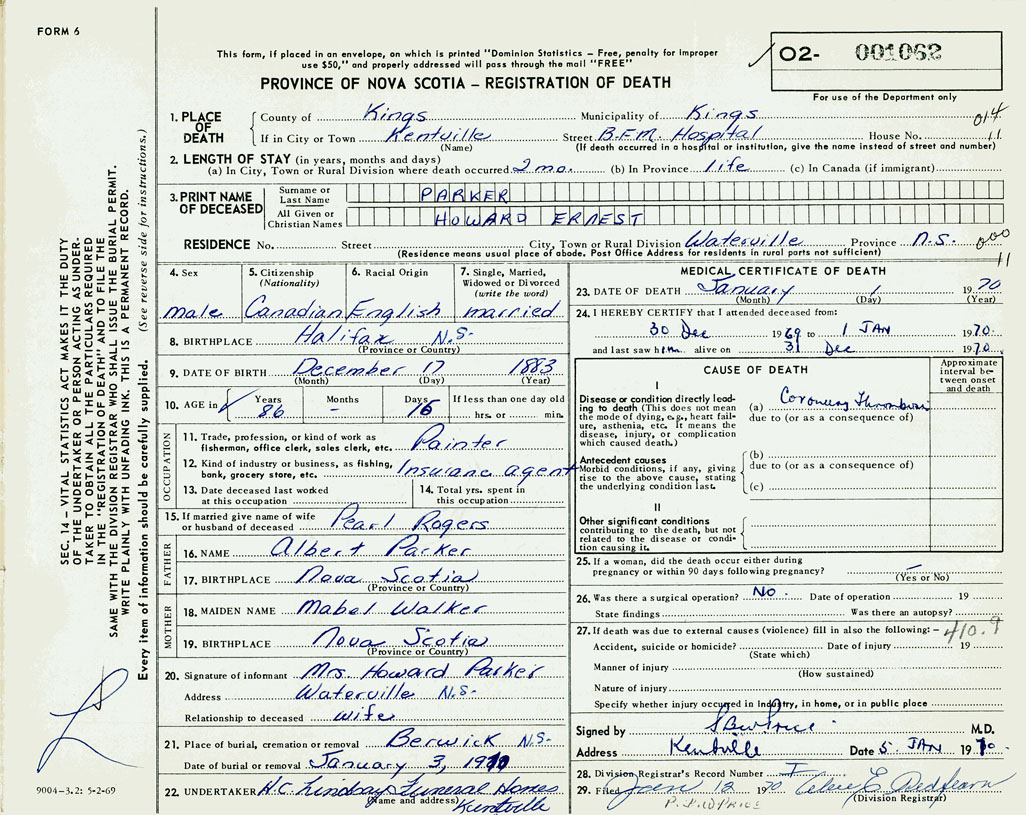 FORM 6
This form, if placed in an envelope, on which is printed "Dominion Statistics – Free, penalty for improper
use $50," and properly addressed will pass through the mail "FREE"
PROVINCE OF NOVA SCOTIA – REGISTRATION OF DEATH
02- 001062
For use of the Department only
SEC. 14 – VITAL STATISTICS ACT MAKES IT THE DUTY
OF THE UNDERTAKER OR PERSON ACTING AS UNDER-
TAKER TO OBTAIN ALL THE PARTICULARS REQUIRED
IN THE "REGISTRATION OF DEATH" AND TO FILE THE
SAME WITH THE DIVISION REGISTRAR WHO SHALL ISSUE THE BURIAL PERMIT.
WRITE PLAINLY WITH UNFADING INK. THIS IS A PERMANENT RECORD.
Every item of information should be carefully supplied. (See reverse side for instructions.)
1. PLACE OF DEATH
County of Kings Municipality of Kings 014
If in City or Town Kentville Street B.F.M. Hospital House No. 11
(Name) (If death occurred in a hospital or institution, give the name instead of street and number)
2. LENGTH OF STAY (in years, months and days)
(a) In City, Town or Rural Division where death occurred 2 mo. (b) In Province life (c) In Canada (if immigrant)
3. PRINT NAME OF DECEASED
Surname or Last Name PARKER
All Given or Christian Names HOWARD ERNEST
RESIDENCE No. Street City, Town or Rural Division Waterville Province N.S. 000
(Residence means usual place of abode. Post Office Address for residents in rural parts not sufficient) 11
4. Sex male
5. Citizenship (Nationality) Canadian
6. Racial Origin English
7. Single, Married, Widowed or Divorced (write the word) married
8. BIRTHPLACE Halifax N.S.
(Province or Country)
9. DATE OF BIRTH December 17 1883
(Month) (Day) (Year)
10. AGE in Years 86 Months – Days 16 If less than one day old hrs. or min.
OCCUPATION
11. Trade, profession, or kind of work as
fisherman, office clerk, sales clerk, etc. Painter
12. Kind of industry or business, as fishing,
bank, grocery store, etc. Insurane agent
13. Date deceased last worked
at this occupation
14. Total yrs. spent in
this occupation
15. If married give name of wife
or husband of deceased Pearl Rogers
FATHER
16. NAME Albert Parker
17. BIRTHPLACE Nova Scotia
(Province or Country)
MOTHER
18. MAIDEN NAME Mabel Walker
19. BIRTHPLACE Nova Scotia
(Province or Country)
20. Signature of informant Mrs. Howard Parker
Address Waterville N.S.
Relationship to deceased wife
21. Place of burial, cremation or removal Berwick N.S.
Date of burial or removal January 3, 1970
22. UNDERTAKER H.C. Lindsay Funeral Homes
(Name and address) Kentville
9004–3.2: 5-2-69
MEDICAL CERTIFICATE OF DEATH
23. DATE OF DEATH January 1 1970
(Month) (Day) (Year)
24. I HEREBY CERTIFY that I attended deceased from:
30 Dec 1969 to 1 JAN 1970.
and last saw him alive on 31 Dec 1970.
CAUSE OF DEATH
Approximate interval be-
tween onset and death
I
Disease or condition directly lead-
ing to death (This does not mean
the mode of dying, e.g., heart fail-
ure, asthenia, etc. It means the
disease, injury, or complication
which caused death.)
(a) Coronary Thrombosis
due to (or as a consequence of)
Antecedent causes
Morbid conditions, if any, giving
rise to the above cause, stating
the underlying condition last.
(b)
due to (or as a consequence of)
(c)
II
Other significant conditions
contributing to the death, but not
related to the disease or condi-
tion causing it.
25. If a woman, did the death occur either during
pregnancy or within 90 days following pregnancy? –
(Yes or No)
26. Was there a surgical operation? NO. Date of operation 19
State findings Was there an autopsy?
27. If death was due to external causes (violence) fill in also the following: – 410.9
Accident, suicide or homicide? Date of injury 19
(State which)
Manner of injury
(How sustained)
Nature of injury
Specify whether injury occurred in Industry, in home, or in public place
Signed by M.D.
Address Kentville Date 5 JAN 1970.
28. Division Registrar's Record Number I
29. Filed Jan 12 1970
(Division Registrar)